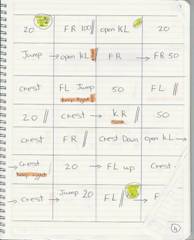 20 FR 100 open KL 20
Jump → open KL FR → FR 50
Chest FL Jump 50 FL
20 Chest → KR Chest
Chest FR Chest Down open KL →
→ Chest 20 FL up Chest
→ Chest Jump 20 FL → F